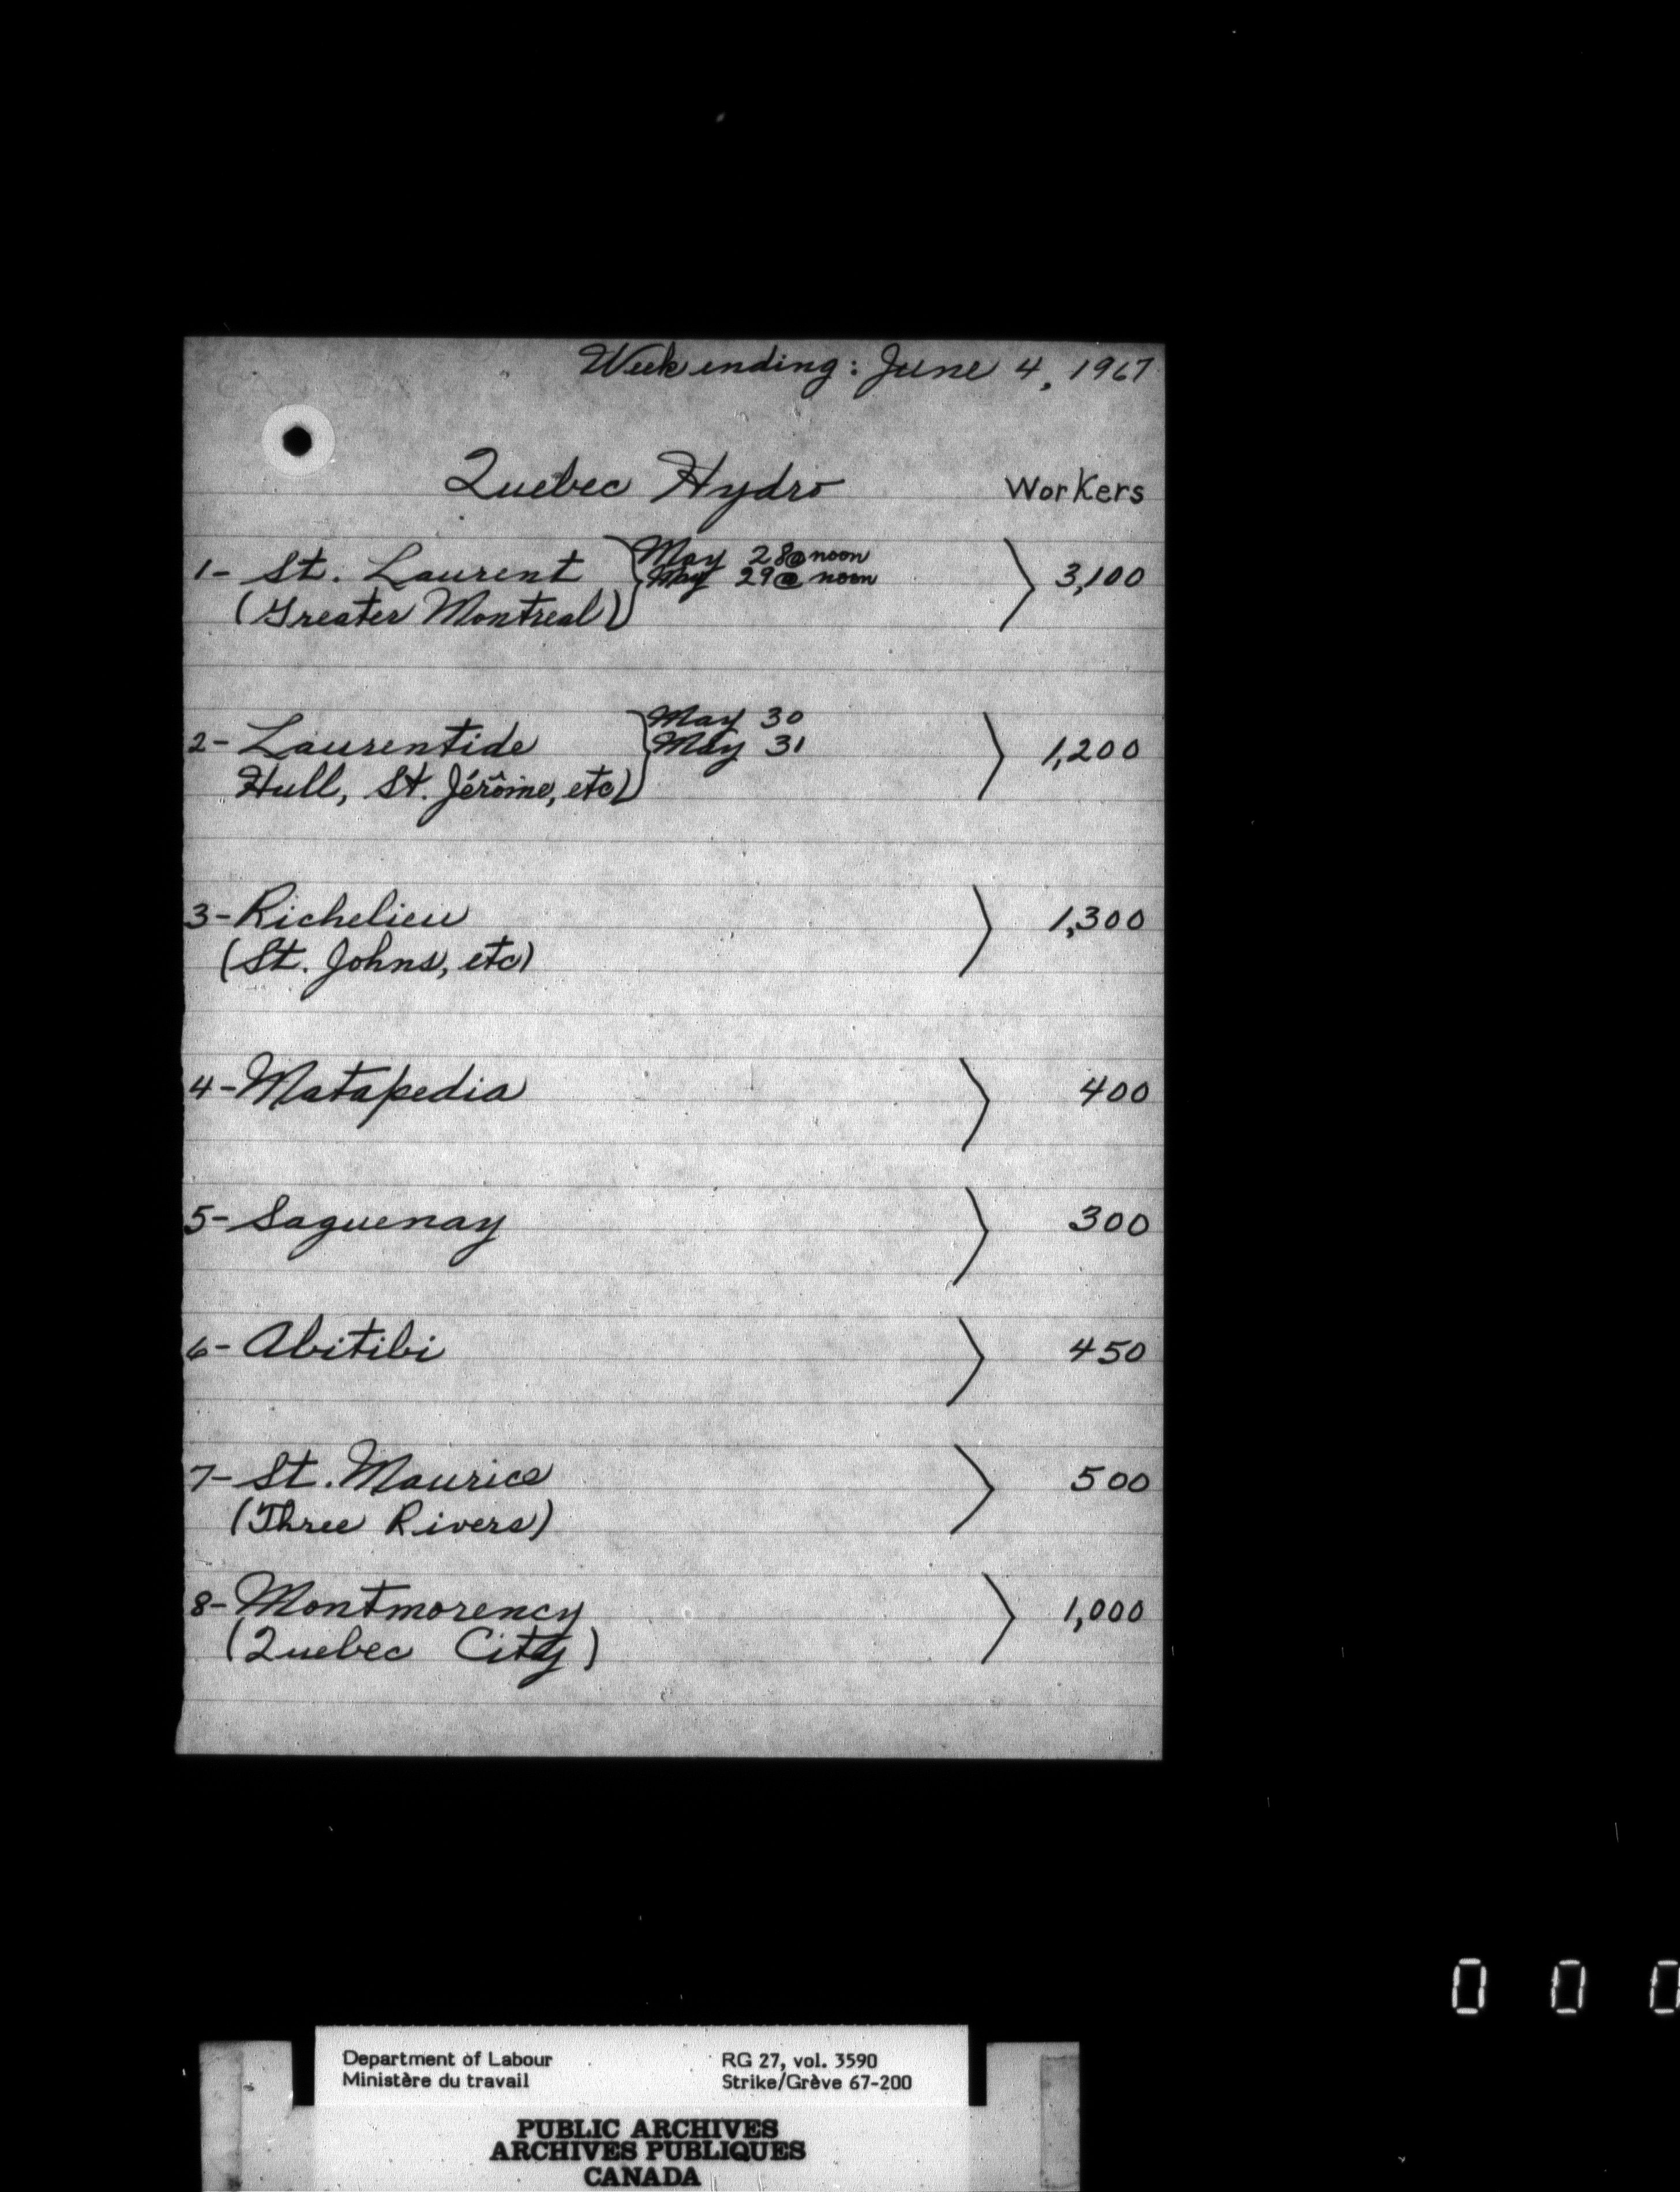 Week ending: June 4, 1967
Quebec Hydro Workers
1- St. Laurent May 28@noon 3,100
May 29@ noon
(Greater Montreal)
2- Laurentide May 30 1,200
May 31
Hull, St. Jérôme, etc)
3- Richelieu 1,300
(St. Johns, etc)
4- Matapedia 400
5- Saguenay 300
6- Abitibi 450
7- St. Maurice 500
(Three Rivers)
8- Montmorency 1,000
(Quebec City)
0 0 0
Department of Labour RG 27, vol. 3590
Ministère du travail Strike/Grève 67-200
PUBLIC ARCHIVES
ARCHIVES PUBLIQUES
CANADA